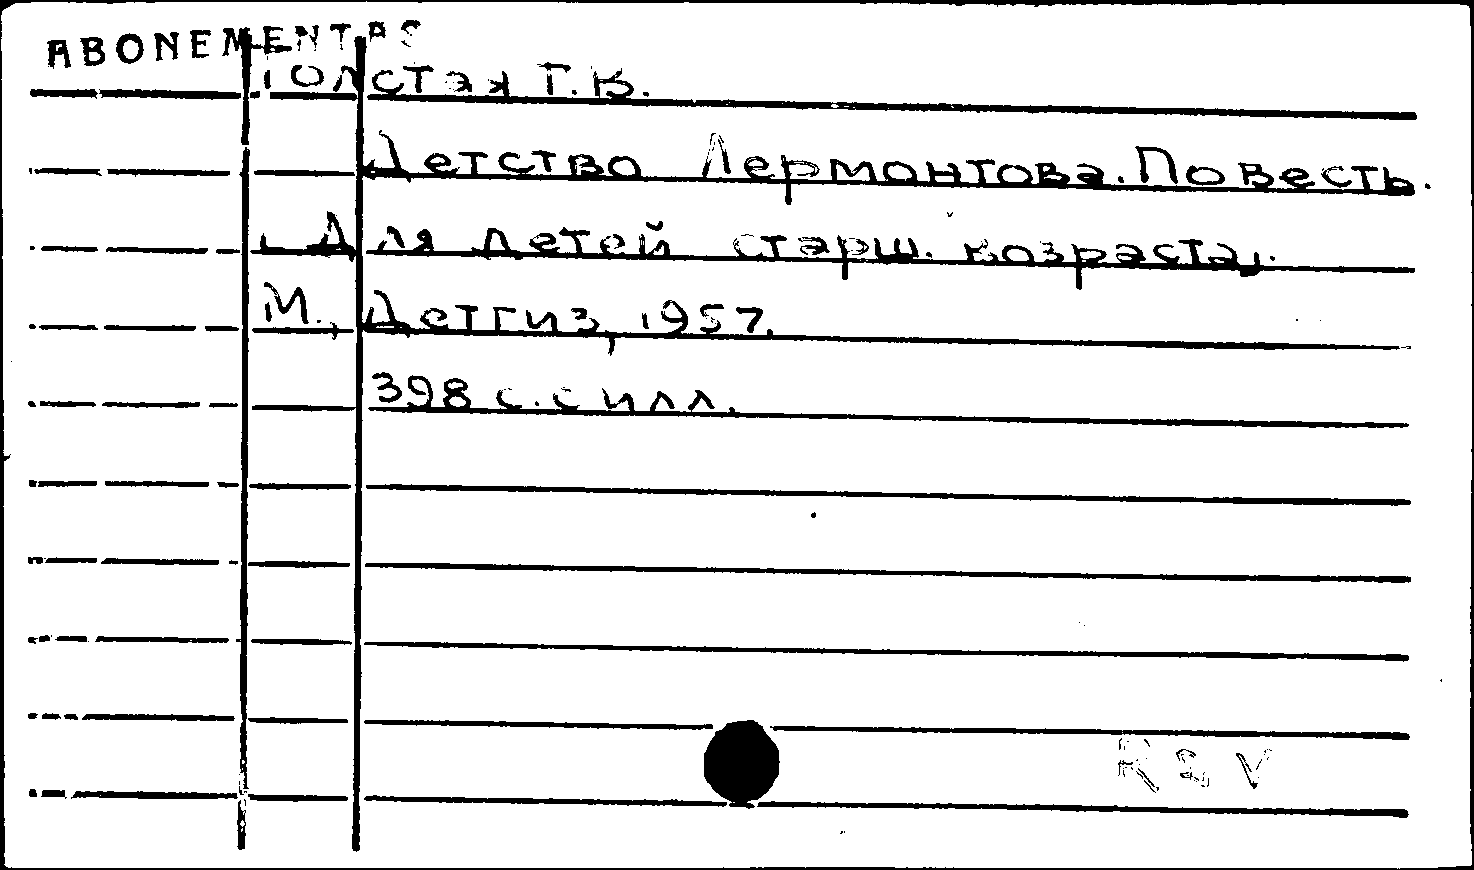 ABONEMENTAS
Толстая Т.В.
Детство Лермонтова. Повесть.
[Для детей старш. возраста].
М., Детгиз, 1957.
398 с. с илл.